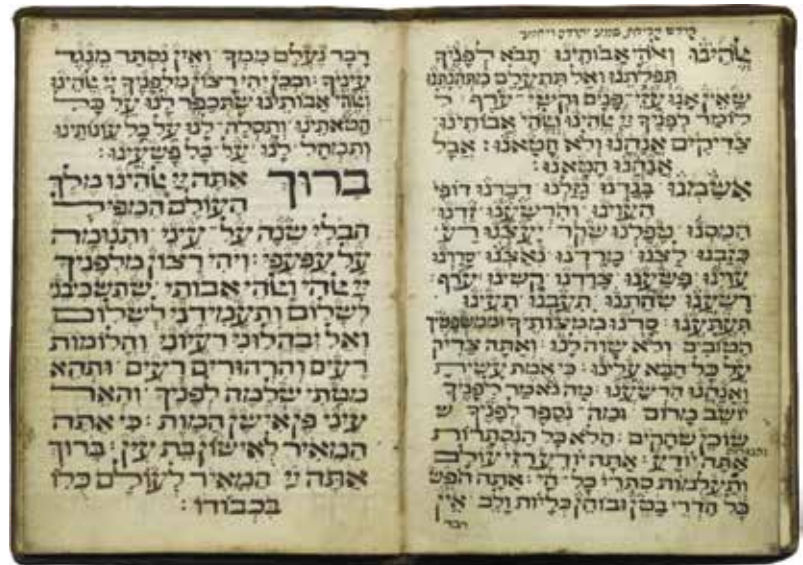 ﭏהינו וﭏהי אבותינו תבא לפניך
תפלתנו ואל תתעלם מתחנתנו
שאין אנו עזי פנים וקשי ערף ל
לומר לפניך יי ﭏהינו וﭏהי אבותינו
צדיקים אנחנו ולא חטאנו : אבל
אנחנו חטאנו :
אשמנו בגדנו גזלנו דברנו דופי
העוינו והרשענו זדנו
חמסנו טפלנו שקר יעצנו רע
כזבנו לצנו מרדנו נאצנו סררנו
עוינו פשענו צררנו קשינו עורף
רשענו שחתנו תעבנו תעינו
תעתענו סרנו ממצותיך וממשפטיך
הטובים ולא שוה לנו ואתה צדיק
על כל הבא עלינו כי אמת עשית
ואנחנו הרשענו מה נאמר לפניך
יושב מרום ומה נספר לפניך ש
שוכן שחקים הלא כל הנסתרות
והנגלות
אתה יודע אתה יודע רזי עולם
ותעלמות סתרי כל חי אתה חופש
כל חדרי בטן ובוחן כליות ולב אין
דבר
דבר נעלם ממך ואין נסתר מנגד
עיניך ובכן יהי רצון מלפניך יי ﭏהינו
וﭏהי אבותינו שתכפר לנו על כל
חטאתינו ותסלח לנו על כל עונותינו
ותמחל לנו על כל פשעינו :
ברוך אתה יי ﭏהינו מלך
העולם המפיל
חבלי שנה על עיני ותנומה
על עפעפי ויהי רצון מלפניך
יי ﭏהי וﭏהי אבותי שתשכיבני
לשלום ותעמידני לשלום
ואל יבהלוני רעיוני וחלומות
רעים והרהורים רעים ותהא
מטתי שלמה לפניך והאר
עיני פן אישן המות כי אתה
המאיר לאישון בת עין ברוך
אתה יי המאיר לעולם כלו
בכבודו :